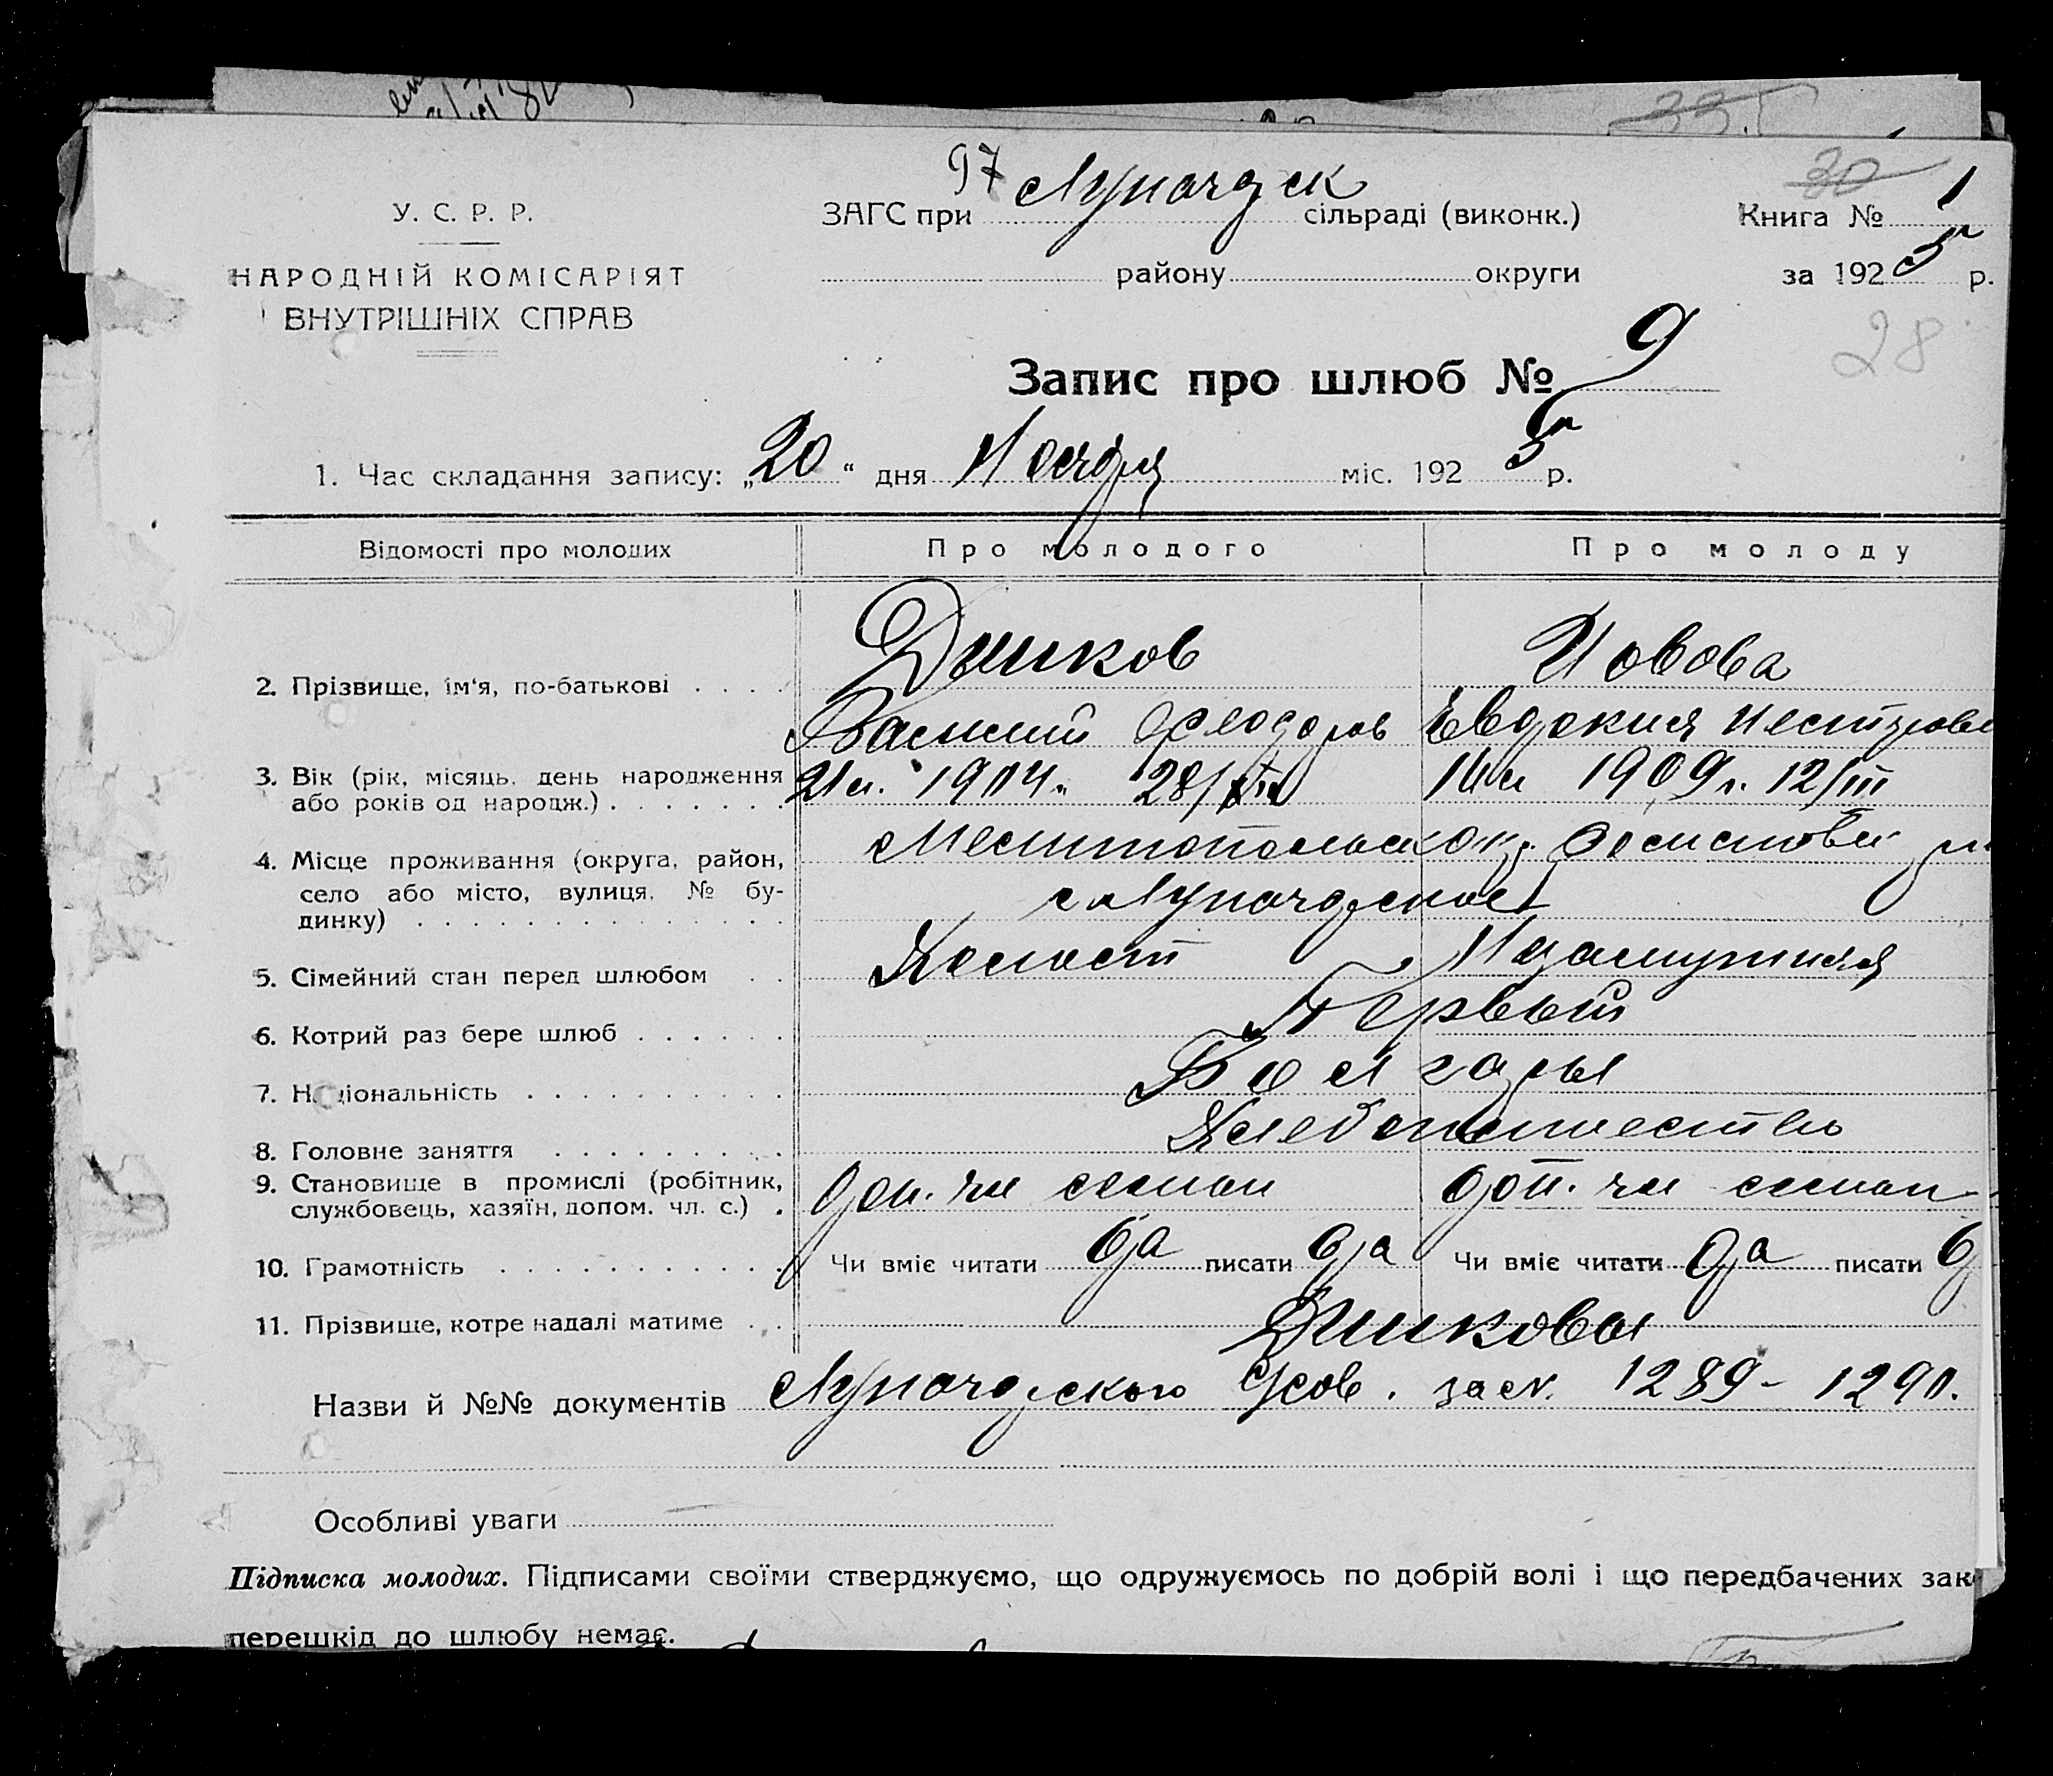 97
30
У. С. Р. Р.
ЗАГС при Луначарск сільраді (виконк.)
Книга № 1
НАРОДНІЙ КОМІСАРІЯТ
ВНУТРІШНІХ СПРАВ
району округи
за 1925 р.
28
Запис про шлюб № 9
1. Час складання запису: „20“ дня Ноября міс. 1925 р.
Відомості про молодих Про молодого Про молоду
Дишков Иовова
2. Прізвище, їм'я, по-батькові
Василий Феодоров Евдокия
3. Вік (рік, місяць, день народження 21 л. 1904 28/ 16 л 1909 г. 12/III
або років од народж.)
4. Місце проживання (округа, район, Мелитопольск окр.
село або місто, вулиця, № бу-
динку) с Луначарское
5. Сімейний стан перед шлюбом Холост Незамужняя
6. Котрий раз бере шлюб Первый
7. Національність Болгары
8. Головне заняття Хлебопашество
9. Становище в промислі (робітник,
службовець, хазяїн, допом. чл. с.) доп. чл семьи доп. чл семьи
10. Грамотність Чи вміє читати да писати да Чи вміє читати да писати д
11. Прізвище, котре надалі матиме Дишковы
Назви й №№ документів Луначарского 1289 - 1290.
Особливі уваги
Підписка молодих. Підписами своїми стверджуємо, що одружуємось по добрій волі і що передбачених зак
перешкід до шлюбу немає.